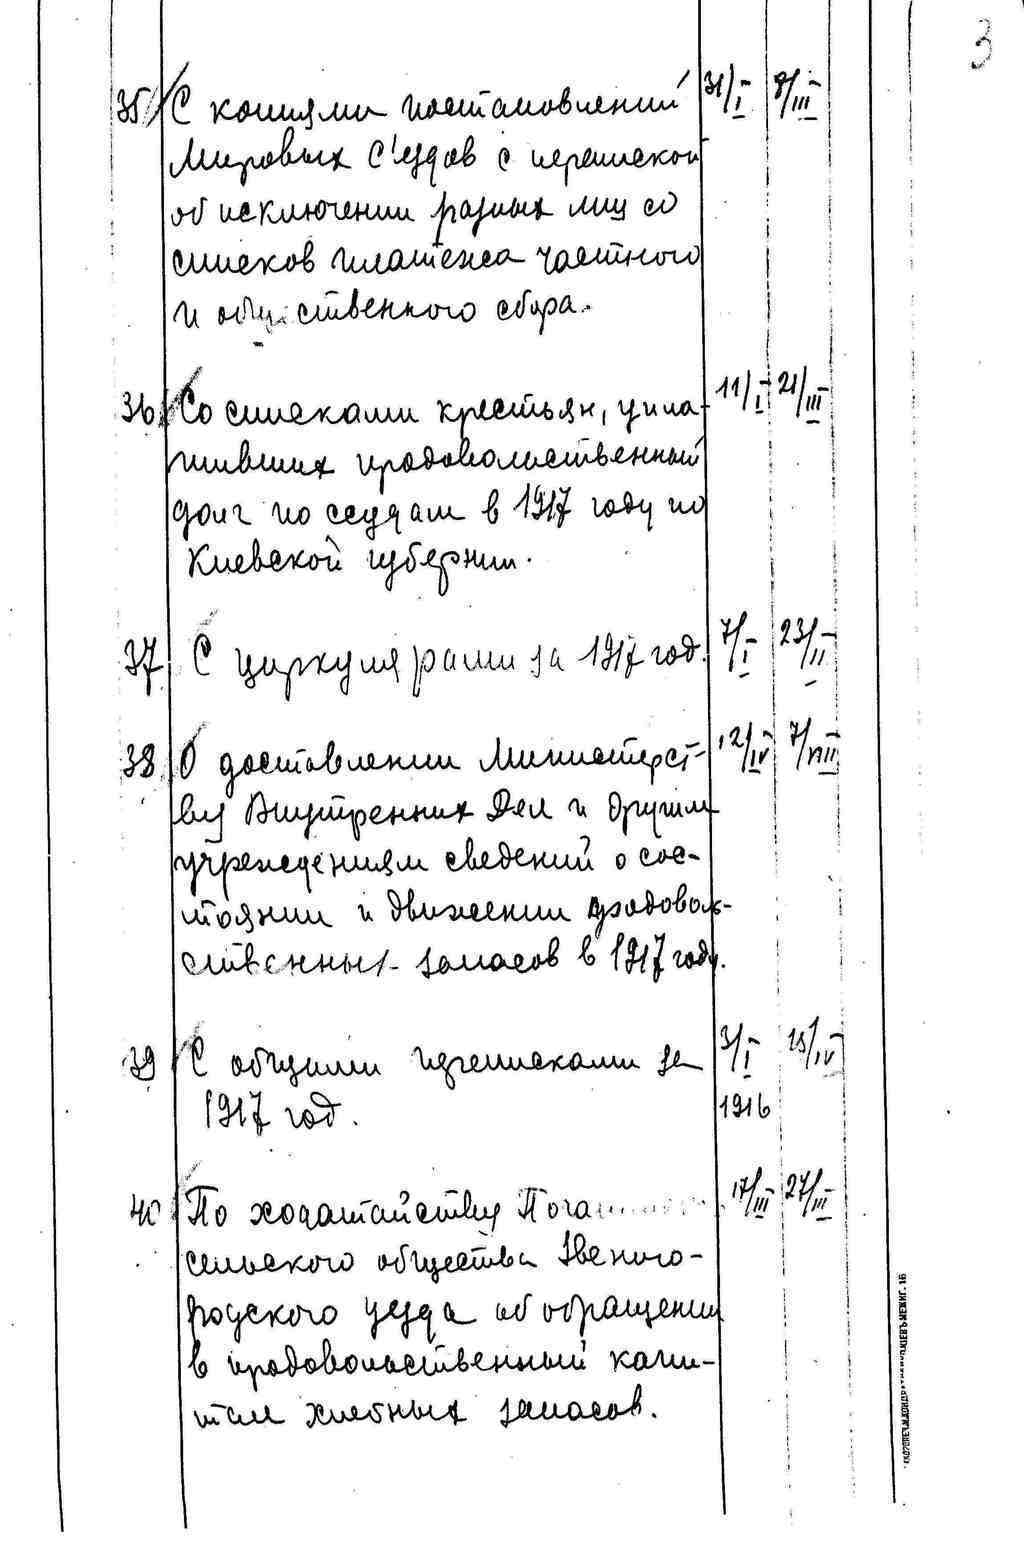 3
35 С копиями постановлений 31/I 8/III
Мировых С'ездов с перепиской
об исключении разных лиц со
списков платежа частного
и общественного сбора.
36 Со списками крестьян, упла- 11/I 21/III
тивших продовольственный
долг по ссудам в 1917 году по
Киевской губернии.
37 С циркулярами за 1917 год. 7/I 23/II
38 О доставлении Министерст- 12/IV 7/VIII
ву Внутренних Дел и другим
учреждениям сведений о сос-
тоянии и движении продоволь-
ственных запасов в 1917 году.
39 С общими переписками за 3/I 25/IV
1917 год. 1916
40 По ходатайству 17/III 27/III
сельского общества Звениго-
родского уезда об обращении
в продовольственный капи-
тал хлебных запасов.